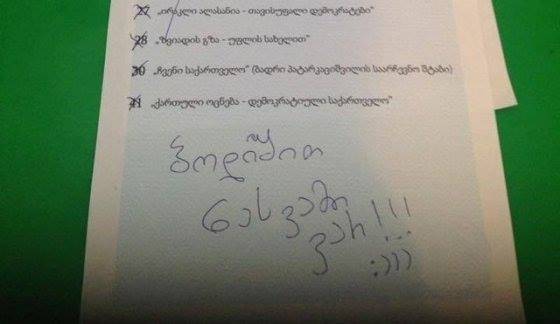 27 „ირაკლი ალასანია - თავისუფალი დემოკრატები“
28 „ზვიადის გზა - უფლის სახელით“
30 „ჩვენი საქართველო“ (ბადრი პატარკაციშვილის საარჩევნო შტაბი)
41 „ქართული ოცნება - დემოკრატიული საქართველო“
ბოდიშით
ნასვამი
ვარ!!!
:)))